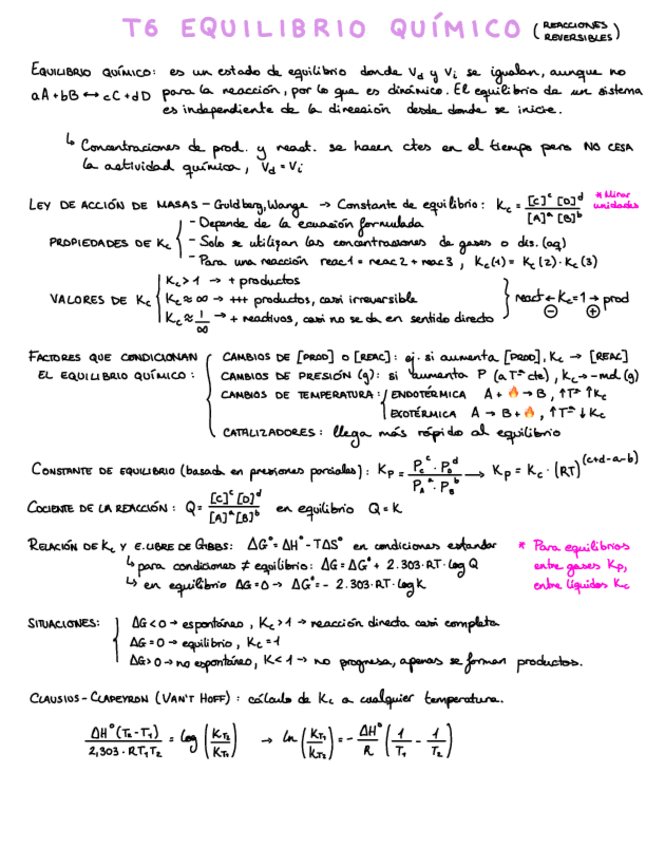 T6 EQUILIBRIO QUÍMICO (REACCIONES REVERSIBLES)
EQUILIBRIO QUÍMICO: es un estado de equilibrio donde Vd y Vi se igualan, aunque no
aA + bB ↔ cC + dD para la reacción, por lo que es dinámico. El equilibrio de un sistema
es independiente de la dirección desde donde se inicie.
↳ Concentraciones de prod. y react. se hacen ctes en el tiempo pero NO CESA
la actividad química, Vd = Vi
LEY DE ACCIÓN DE MASAS - Guldberg, Wange → Constante de equilibrio: Kc = [C]^c [D]^d / [A]^a [B]^b * Mirar unidades
PROPIEDADES DE Kc { - Depende de la ecuación formulada
- Solo se utilizan las concentraciones de gases o dis. (aq)
- Para una reacción reac1 = reac2 + reac3, Kc(1) = Kc(2)·Kc(3)
VALORES DE Kc { Kc > 1 → + productos
Kc ≈ ∞ → +++ productos, casi irreversible
Kc ≈ 1/∞ → + reactivos, casi no se da en sentido directo
} react ← Kc = 1 → prod
⊖ ⊕
FACTORES QUE CONDICIONAN EL EQUILIBRIO QUÍMICO: { CAMBIOS DE [PROD] O [REAC]: ej. si aumenta [PROD], Kc → [REAC]
CAMBIOS DE PRESIÓN (g): si aumenta P (a Tª cte), Kc → -mol (g)
CAMBIOS DE TEMPERATURA: { ENDOTÉRMICA A + 🔥 → B, ↑Tª ↑Kc
EXOTÉRMICA A → B + 🔥, ↑Tª ↓Kc
CATALIZADORES: llega más rápido al equilibrio
CONSTANTE DE EQUILIBRIO (basada en presiones parciales): Kp = Pc^c · PD^d / PA^a · PB^b → Kp = Kc · (RT)^(c+d-a-b)
COCIENTE DE LA REACCIÓN: Q = [C]^c [D]^d / [A]^a [B]^b en equilibrio Q = K
RELACIÓN DE Kc Y E. LIBRE DE GIBBS: ΔG° = ΔH° - TΔS° en condiciones estandar
↳ para condiciones ≠ equilibrio: ΔG = ΔG° + 2.303·RT·log Q
↳ en equilibrio ΔG = 0 → ΔG° = - 2.303·RT·log K
* Para equilibrios
entre gases Kp,
entre líquidos Kc
SITUACIONES: { ΔG < 0 → espontáneo, Kc > 1 → reacción directa casi completa
ΔG = 0 → equilibrio, Kc = 1
ΔG > 0 → no espontáneo, K < 1 → no progresa, apenas se forman productos.
CLAUSIOS-CLAPEYRON (VAN'T HOFF): cálculo de Kc a cualquier temperatura.
ΔH° (T2 - T1) / 2,303·RT1T2 = log (KT2 / KT1) → ln (KT1 / KT2) = - ΔH° / R (1/T1 - 1/T2)